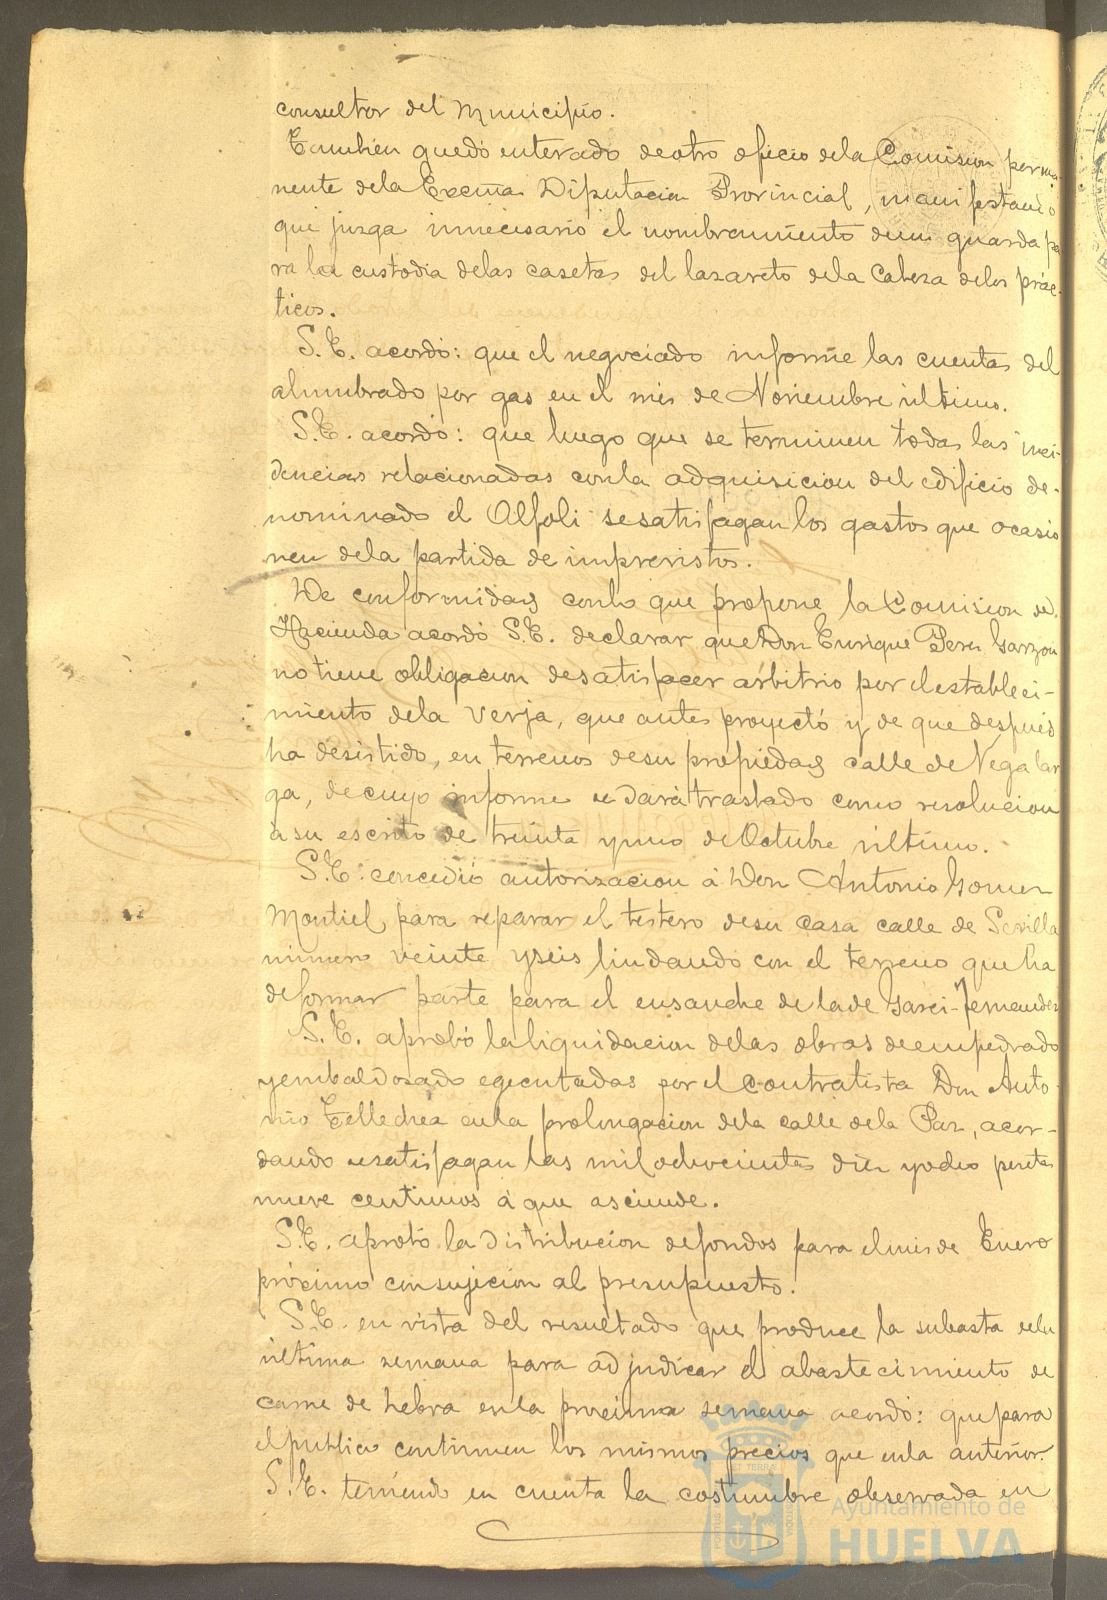 consultor del Municipio.
Tambien quedó enterado de otro oficio de la Comision perma-
nente de la Excma Diputacion Provincial, manifestando
que juzga innecesario el nombramiento de un guarda pa
ra la custodia de las casetas del lazareto de la Cabeza de los prác-
ticos.
S.E. acordó: que el negociado informe las cuentas del
alumbrado por gas en el mes de Noviembre último.
S.E. acordó: que luego que se terminen todas las inci-
dencias relacionadas con la adquisicion del edificio de-
nominado el Alfoli se satisfagan los gastos que ocasio
nen de la partida de imprevistos.
De conformidad con lo que propone la Comision de
Hacienda acordó S.E. declarar que Don Enrique Perez Garzon
no tiene obligacion de satisfacer arbitrio por el estableci-
miento de la verja, que antes proyectó y de que despues
ha desistido, en terrenos de su propiedad calle de Vega lar
ga, de cuyo informe se dará traslado como resolucion
a su escrito de treinta y uno de Octubre último.
S.E. concedió autorizacion á Don Antonio Gomez
Montiel para reparar el testero de su casa calle de Sevilla
número veinte y seis lindando con el terreno que ha
de formar parte para el ensanche de la de Garci-Fernandez
S.E. aprobó la liquidacion de las obras de empedrado
y embaldosado egecutadas por el contratista Don Anto-
nio Tellechea en la prolongacion de la calle de la Paz, acor-
dando se satisfagan las mil ochocientas diez y ocho pesetas
nueve centimos á que asciende.
S.E. aprobó la distribucion de fondos para el mes de Enero
próximo con sujecion al presupuesto.
S.E. en vista del resultado que produce la subasta de la
última semana para adjudicar el abastecimiento de
carne de hebra en la proxima semana acordó: que para
el publico continuen los mismos precios que en la anterior.
S.E. teniendo en cuenta la costumbre observada en
Ayuntamiento de
HUELVA